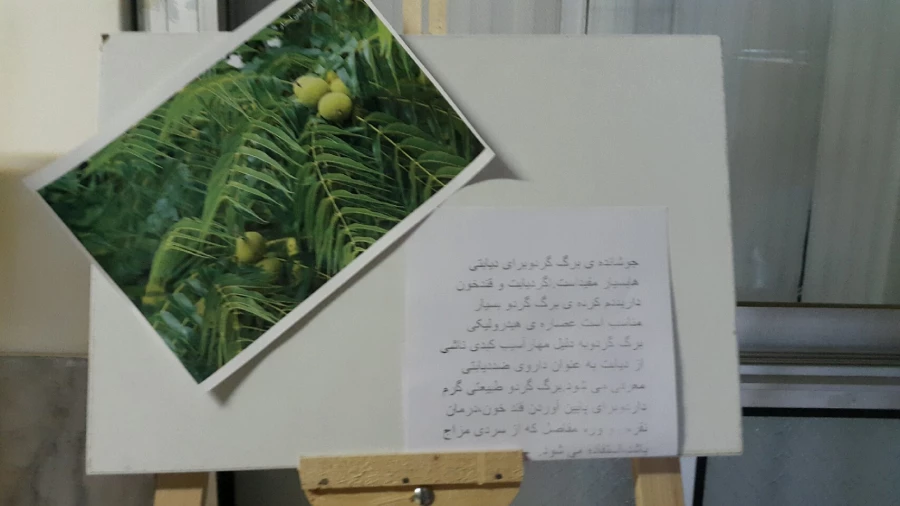 جوشانده ی برگ گردوبرای دیابتی
هابسیار مفیداست.اگردیابت و قندخون
داریددم کرده ی برگ گردو بسیار
مناسب است عصاره ی هیدرولیکی
برگ گردوبه دلیل مهارآسیب کبدی ناشی
از دیابت به عنوان داروی ضددیابتی
معرفی می شود.برگ گردو طبیعتی گرم
دارد،وبرای پایین آوردن قند خون،درمان
نقرس و ورم مفاصل که از سردی مزاج
باشد،استفاده می شود.